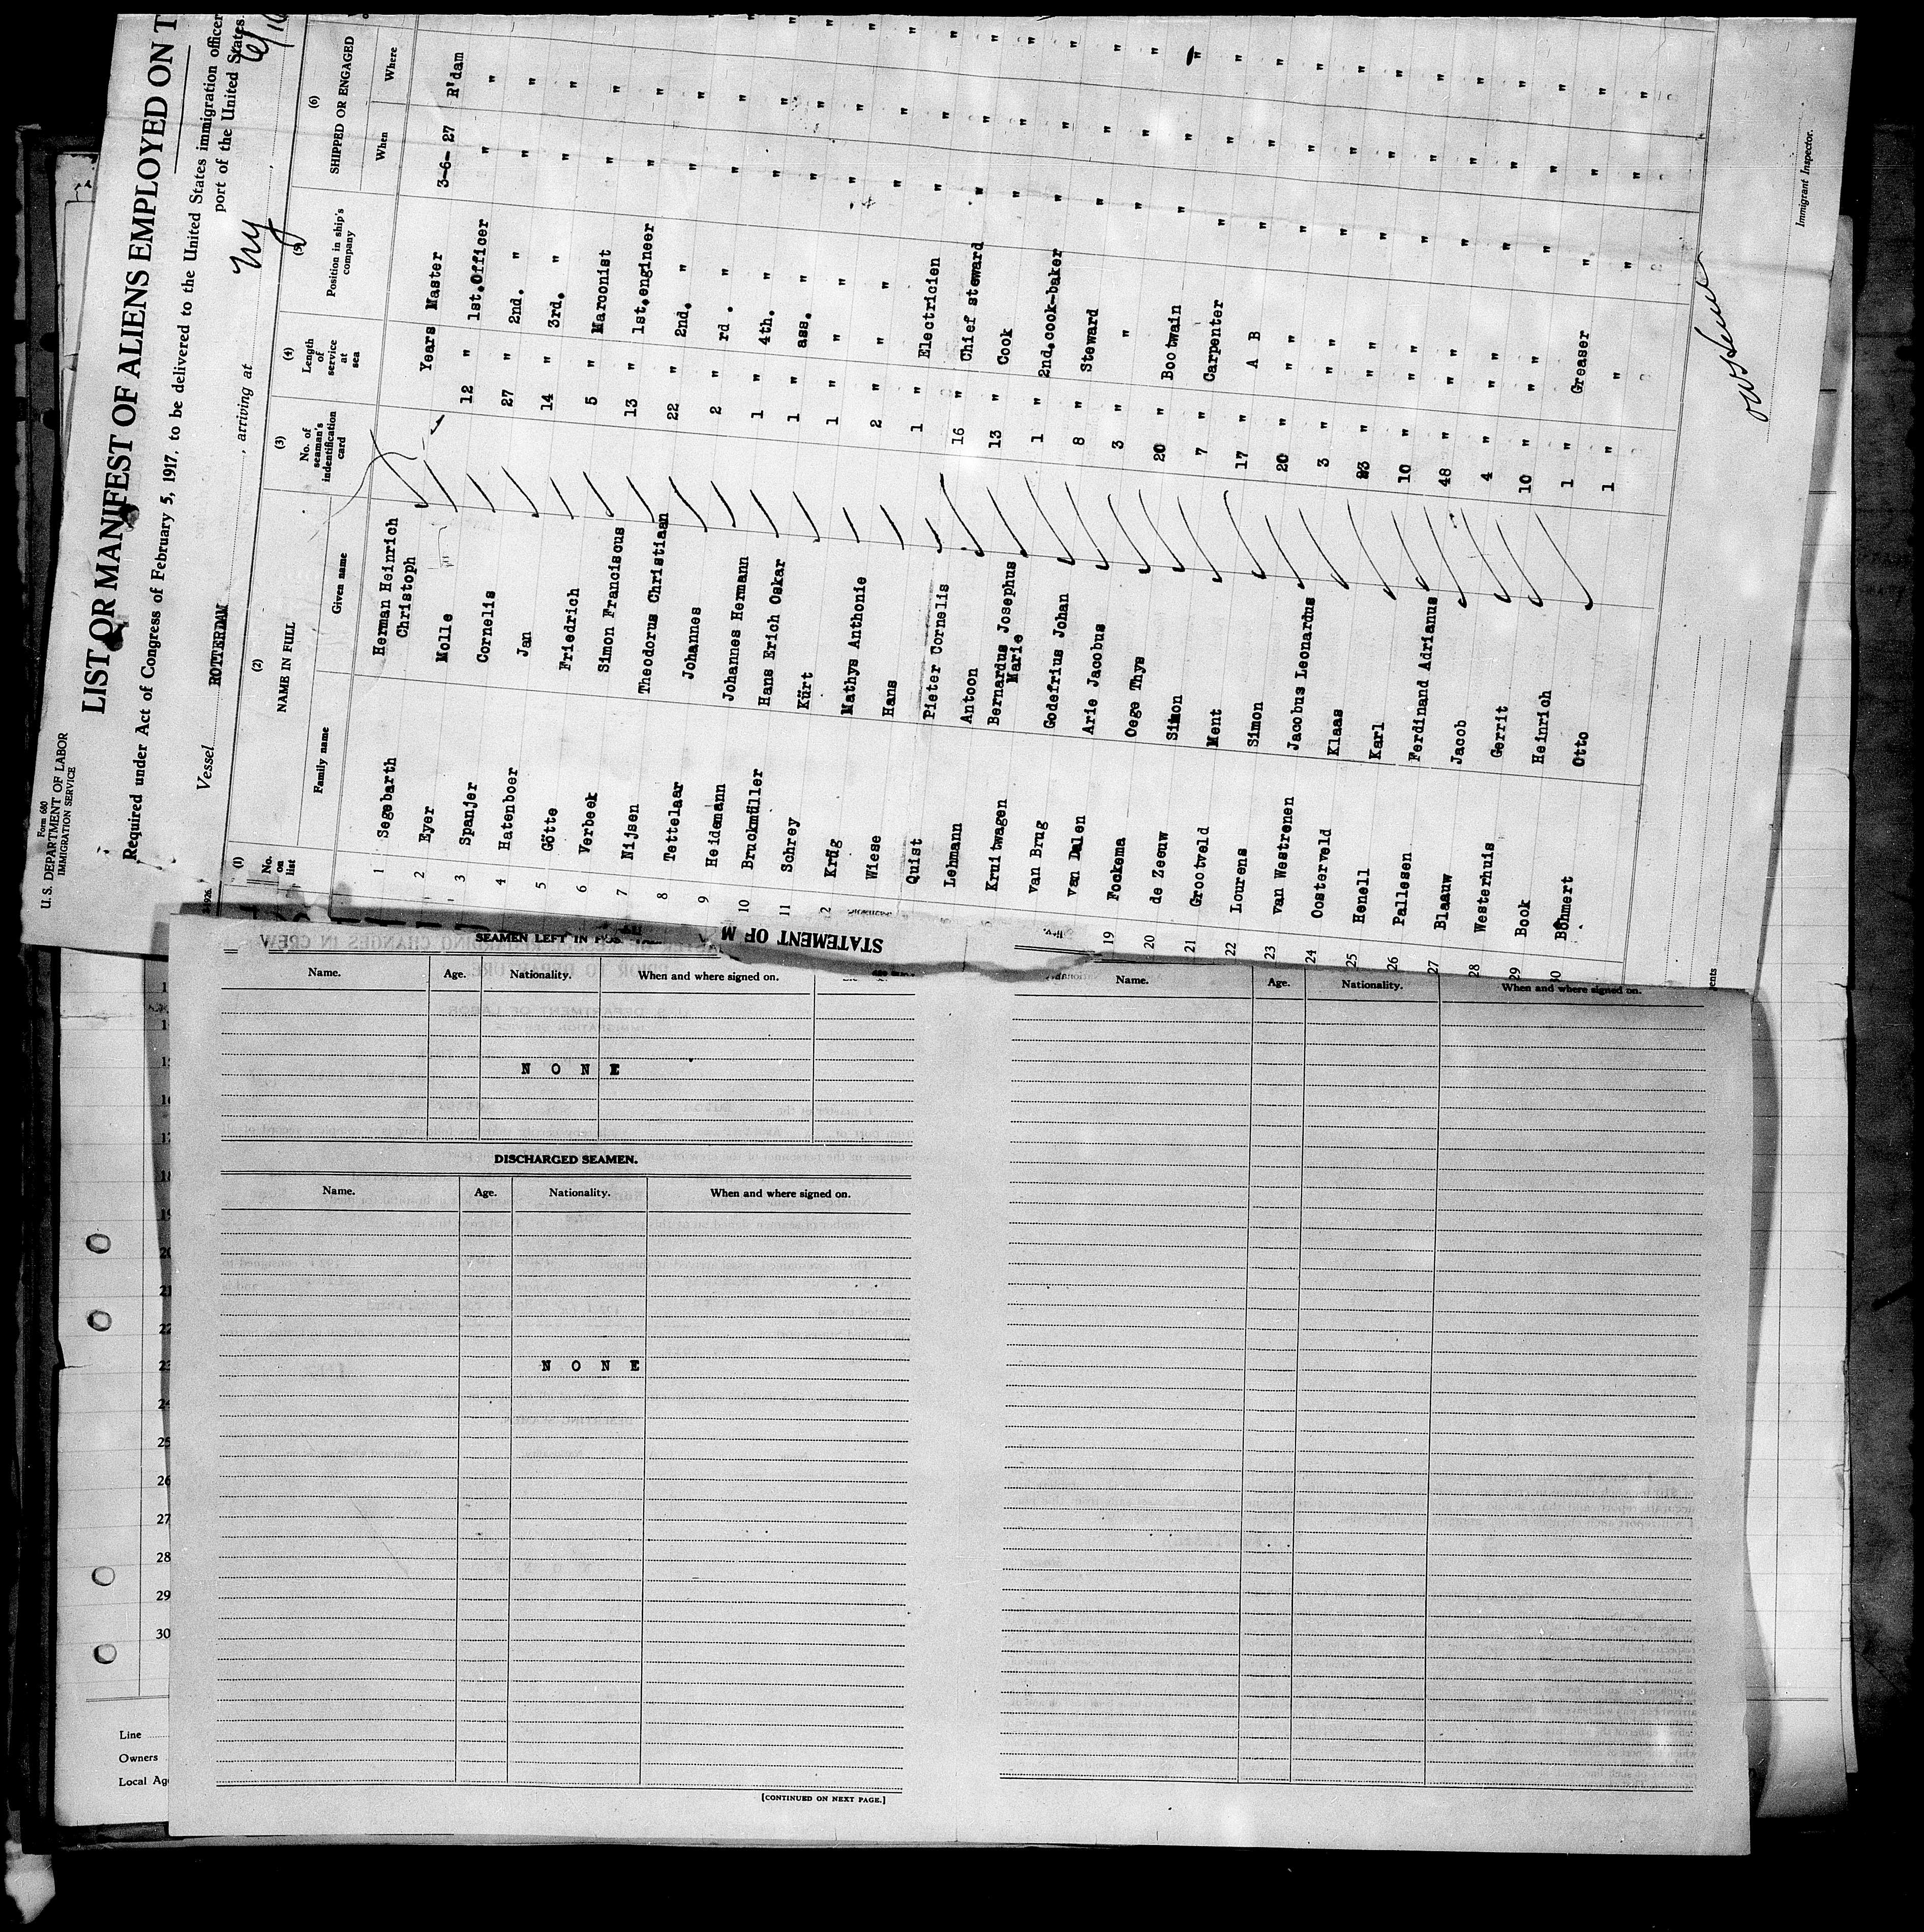 Form 680
U. S. DEPARTMENT OF LABOR
IMMIGRATION SERVICE
LIST OR MANIFEST OF ALIENS EMPLOYED ON T
Required under Act of Congress of February 5, 1917, to be delivered to the United States immigration officer
port of the United States.
Vessel ROTTERDAM , arriving at NY
(1) (2) (3) (4) (5) (6)
No. on list NAME IN FULL No. of seaman's indentification card Length of service at sea Position in ship's company SHIPPED OR ENGAGED
Family name Given name When Where
1 Segebarth Herman Heinrich Christoph Years Master 3-6-27 R'dam
2 Eyer Molle 12 " 1st.Officer " "
3 Spanjer Cornelis 27 " 2nd. " " "
4 Hatenboer Jan 14 " 3rd. " " "
5 Götte Friedrich 5 " Marconist " "
6 Verbeek Simon Franciscus 13 " 1st.engineer " "
7 Nijsen Theodorus Christiaan 22 " 2nd. " " "
8 Tettelaar Johannes 2 " rd . " " "
9 Heidemann Johannes Hermann 1 " 4th. " " "
10 Bruckmüller Hans Erich Oskar 1 " ass. " " "
11 Schrey Kürt 1 " " " "
2 Krüg Mathys Anthonie 2 " " " "
Wiese Hans 1 " Electricien " "
Quist Pieter Cornelis 16 " Chief steward " "
Lehmann Antoon 13 " Cook " "
Kruitwagen Bernardus Josephus Marie 1 " 2nd.cook-baker " "
van Brug Godefrius Johan 8 " Steward " "
van Dalen Arie Jacobus 3 " " " "
19 Fockema Oege Thys 20 " Bootwain " "
20 de Zeeuw Simon 7 " Carpenter " "
21 Grootveld Ment 17 " A B " "
22 Lourens Simon 20 " " " "
23 van Westrenen Jacobus Leonardus 3 " " " "
24 Oosterveld Klaas 23 " " " "
25 Henell Karl 10 " " " "
26 Pallesen Ferdinand Adrianus 48 " " " "
27 Blaauw Jacob 4 " " " "
28 Westerhuis Gerrit 10 " " " "
29 Book Heinrich 1 " Greaser " "
30 Böhmert Otto 1 " " " "
Immigrant Inspector.
STATEMENT OF M
SEAMEN LEFT IN
Name. Age. Nationality. When and where signed on.
N O N E
DISCHARGED SEAMEN.
Name. Age. Nationality. When and where signed on.
N O N E
[CONTINUED ON NEXT PAGE.]
Name. Age. Nationality. When and where signed on.
21
22
23
24
25
26
27
28
29
30
Line
Owners
Local Ag